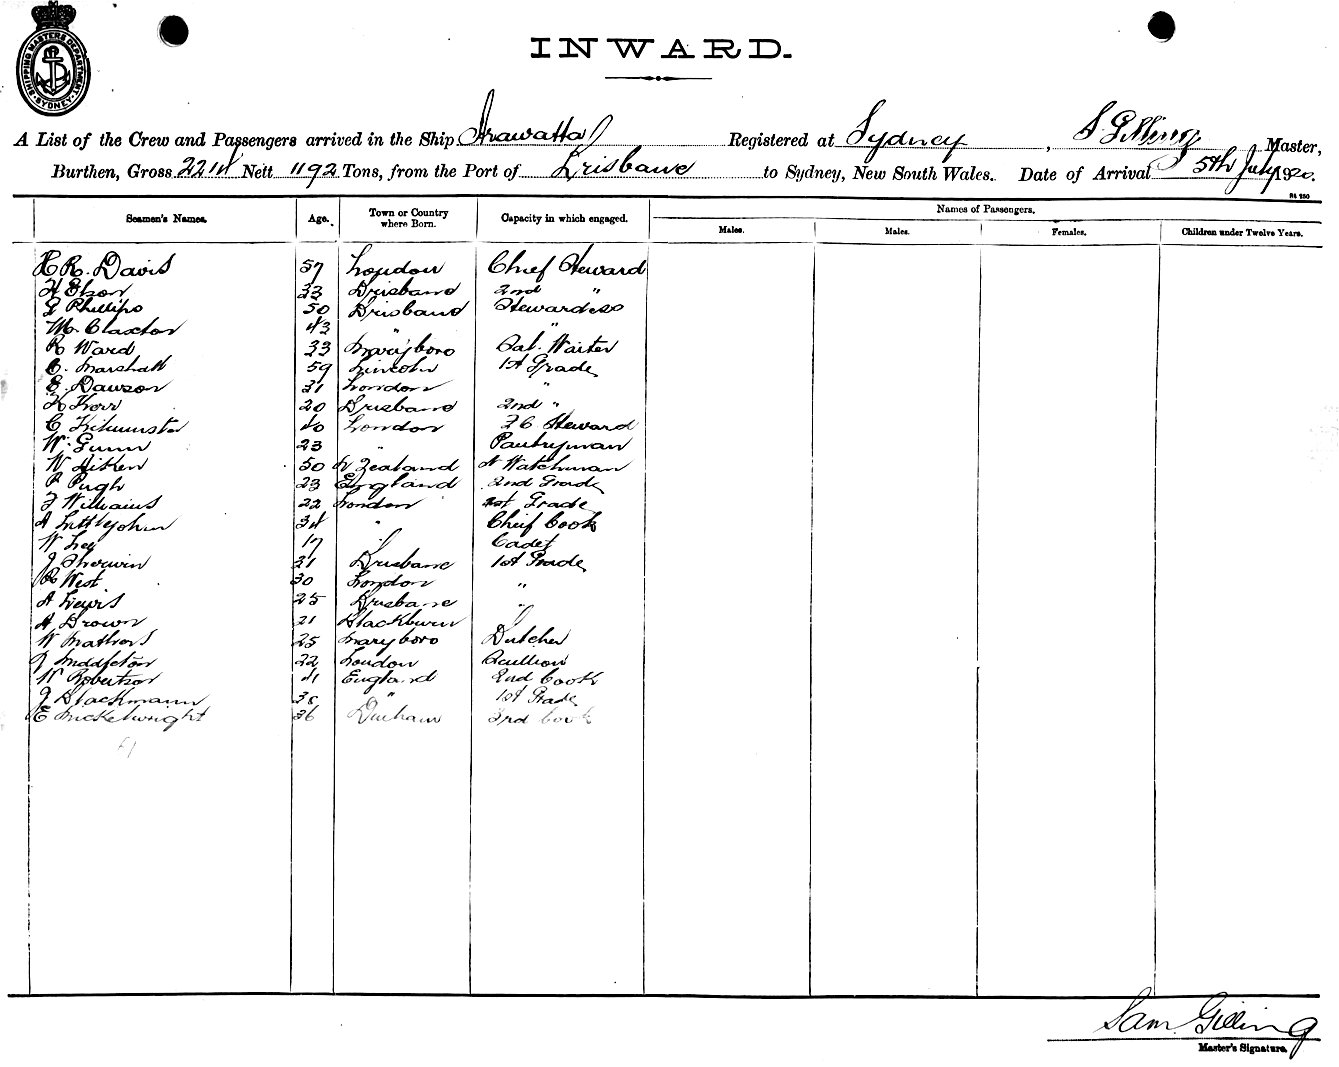 SHIPPING MASTERS DEPARTMENT SYDNEY
INWARD.
A List of the Crew and Passengers arrived in the Ship Arawatta Registered at Sydney, S Gilling Master,
Burthen, Gross 2214 Nett 1192 Tons, from the Port of Brisbane to Sydney, New South Wales. Date of Arrival 5th July 1920.
Seamen's Names. Age. Town or Country where Born. Capacity in which engaged. Names of Passengers.
Males. Males. Females. Children under Twelve Years.
H R. Davis 57 London Chief Steward
H 33 Brisbane 2nd "
G Phillips 50 Brisbane Stewardess
M. Claxton 43 " "
R Ward 33 Maryboro Sal. Waiter
C. Marshall 59 Lincoln 1st Grade
E. Dawson 31 London "
K Kerr 20 Brisbane 2nd "
C Kilminster 40 London Steward
W. Gunn 23 " Pantryman
W Aitken 50 N Zealand N Watchman
R Pugh 23 England 2nd Grade
F Williams 22 London 1st Grade
A Littlejohn 34 " Chief Cook
W Lee 17 " Cadet
J Sherwin 21 Brisbane 1st Grade
R West 30 London "
A Lewis 25 Brisbane "
A Brown 21 Blackburn
W Mathers 25 Maryboro Butcher
J Middleton 22 London Scullion
W Robertson 41 England 2nd Cook
J Blackmann 38 " 1st Grade
E Micklewright 36 Durham 3rd Cook
Sam Gilling
Master's Signature.